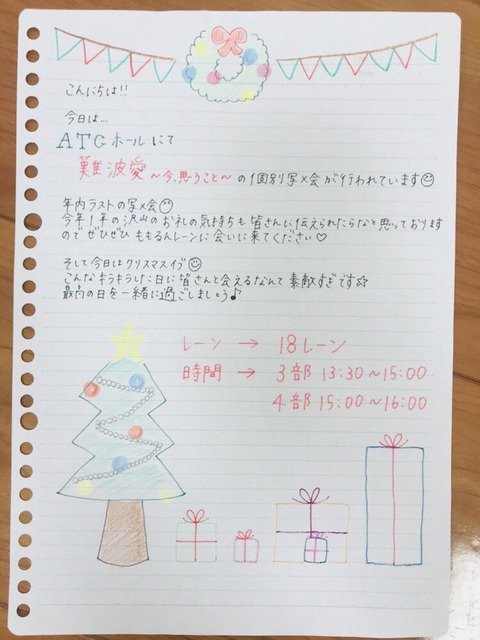 こんにちは!!
今日は...
ATCホールにて
難波愛 〜今、思うこと〜 の個別写メ会が行われています
年内ラストの写メ会
今年1年の沢山のお礼の気持ちも皆さんに伝えられたらなと思っております
ので ぜひぜひ ももるんレーンに会いに来てください♡
そして今日はクリスマスイブ
こんなキラキラした日に皆さんと会えるなんて 素敵すぎです☆
最高の日を一緒に過ごしましょう♪
レーン → 18レーン
時間 → 3部 13:30〜15:00
4部 15:00〜16:00